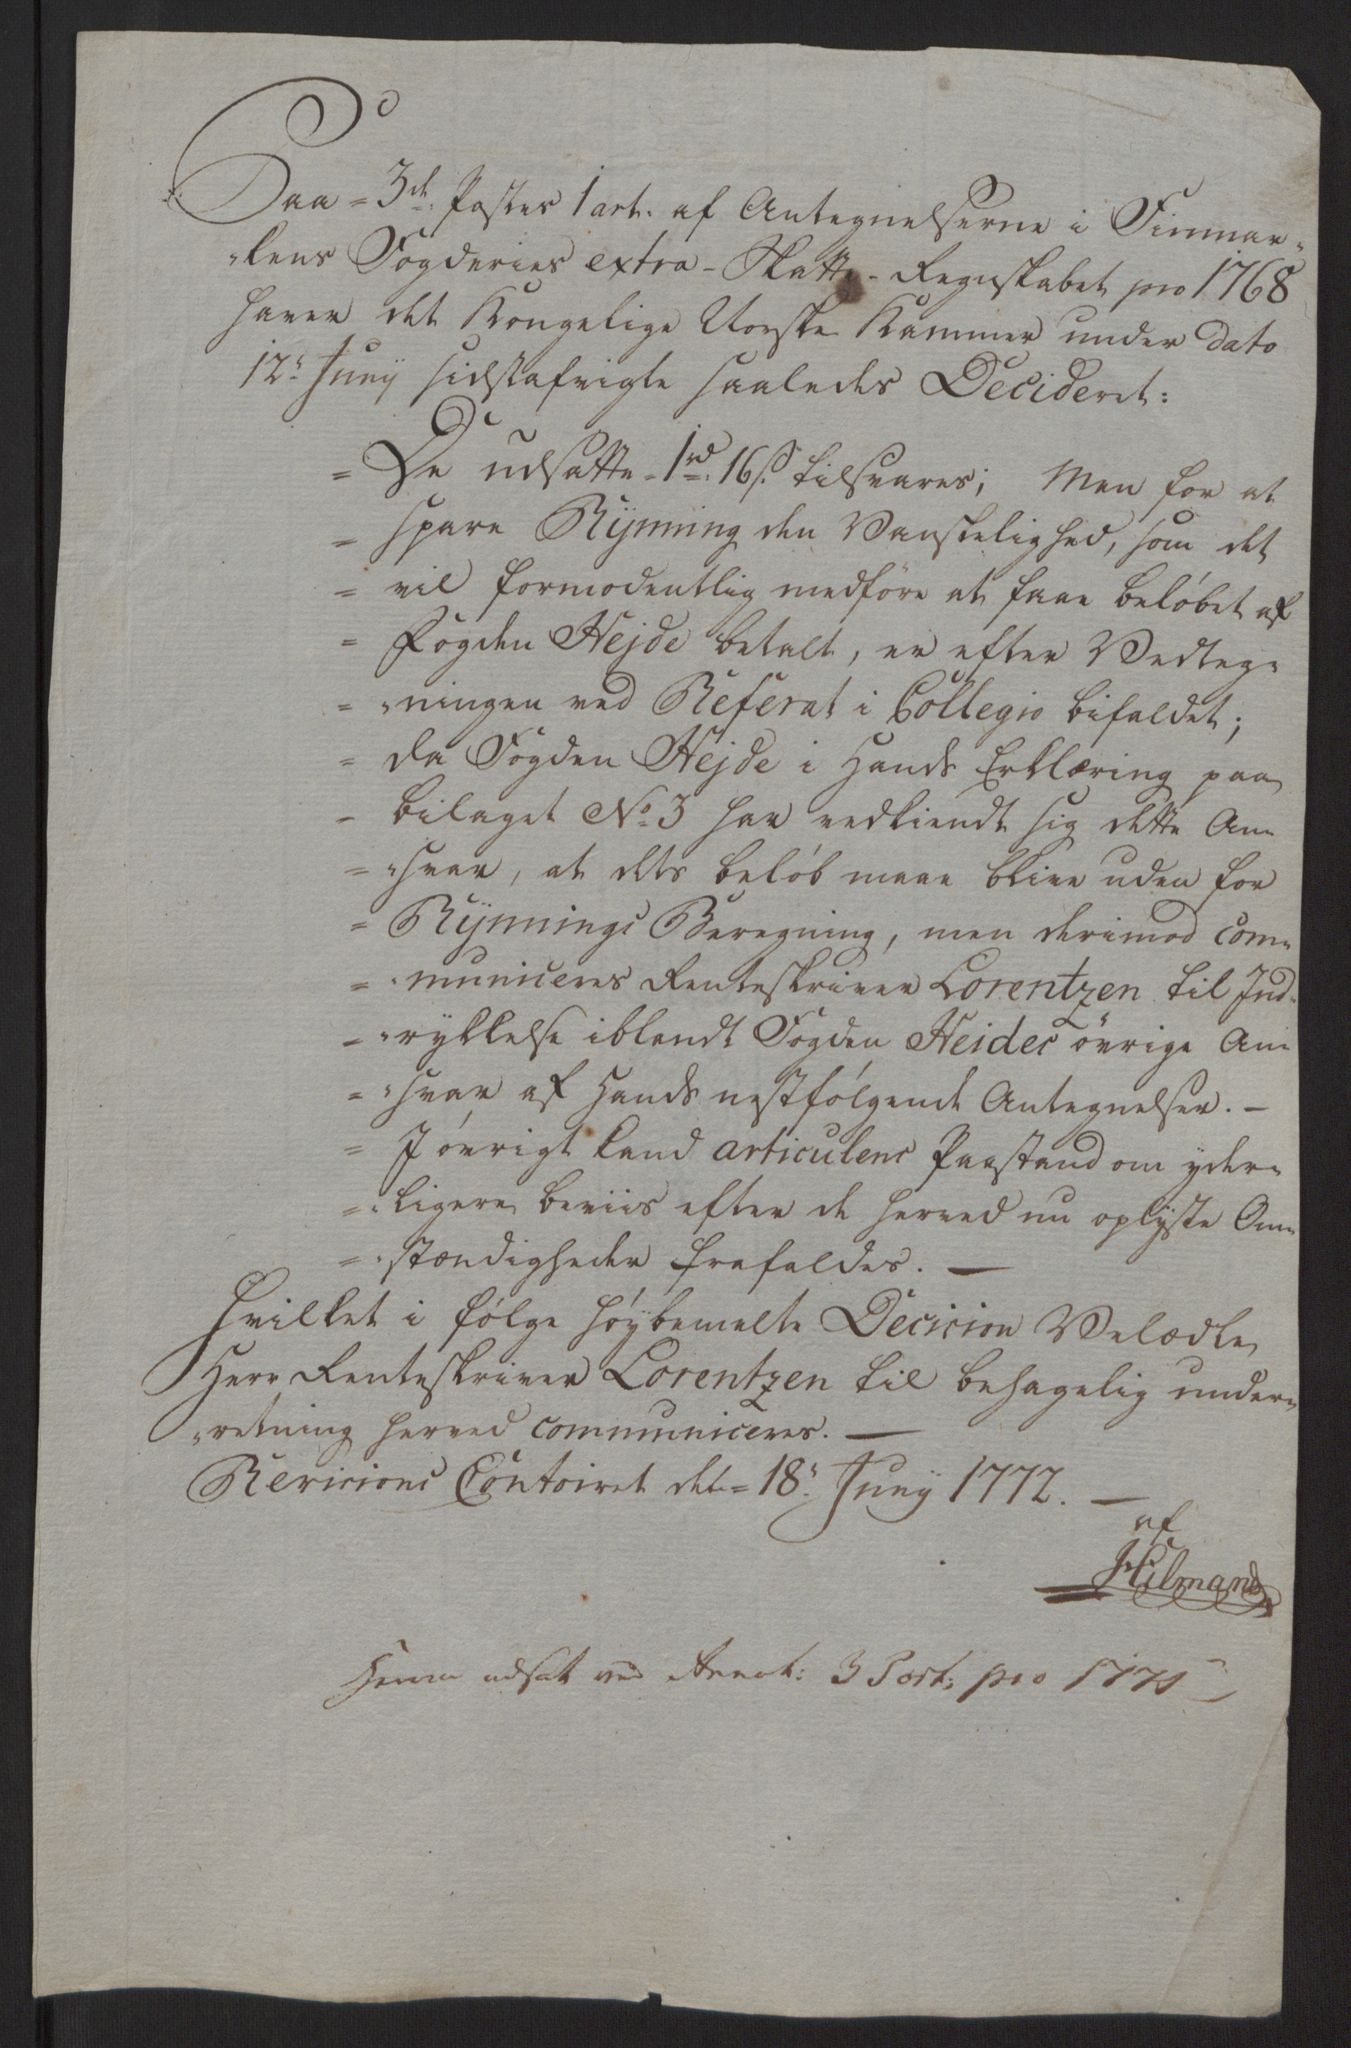 Paa = 3de Postes 1 art. af Antegnelserne i Finmar„
„kens Fogderies extra-Skatte-Regnskabet pro 1768
haver det Kongelige Norske Kammer under dato
12te Junÿ sidstafvigte saaledes Decideret:
= De udsatte = 1 rd. 16 s. tilsvares; Men for at
= spare Rÿnning den Vanskelighed, som det
= vil formodentlig medföre at faae beløbet af
= Fogden Hejde betalt, er efter Vedteg=
= „ningen ved Referat i Collegio bifaldet;
= da Fogden Hejde i Hands Erklæring paa
= bilaget No. 3 har vedkiendt sig dette An=
= „svar, at dets beløb maae blive uden for
= Rÿnnings Beregning, men derimod com=
= „municeres Renteskriver Lorentzen til Ind=
= „rykkelse iblandt Fogden Heides övrige An=
= „svar af Hands nestfølgende Antegnelser. —
= J øvrigt kand articulens Paastand om yder=
= „ligere beviis efter de herved nu oplÿste Om=
= „stændigheder frafaldes. —
Hvilket i følge höÿbemelte Decision Velædle
Herr Renteskriver Lorentzen til behagelig under=
„retning herved communiceres. —
Revisions Contoiret det = 18te Junÿ 1772. —
af
Hilmand
Herom udsat ved Antegt: 3 Post: pro 1771